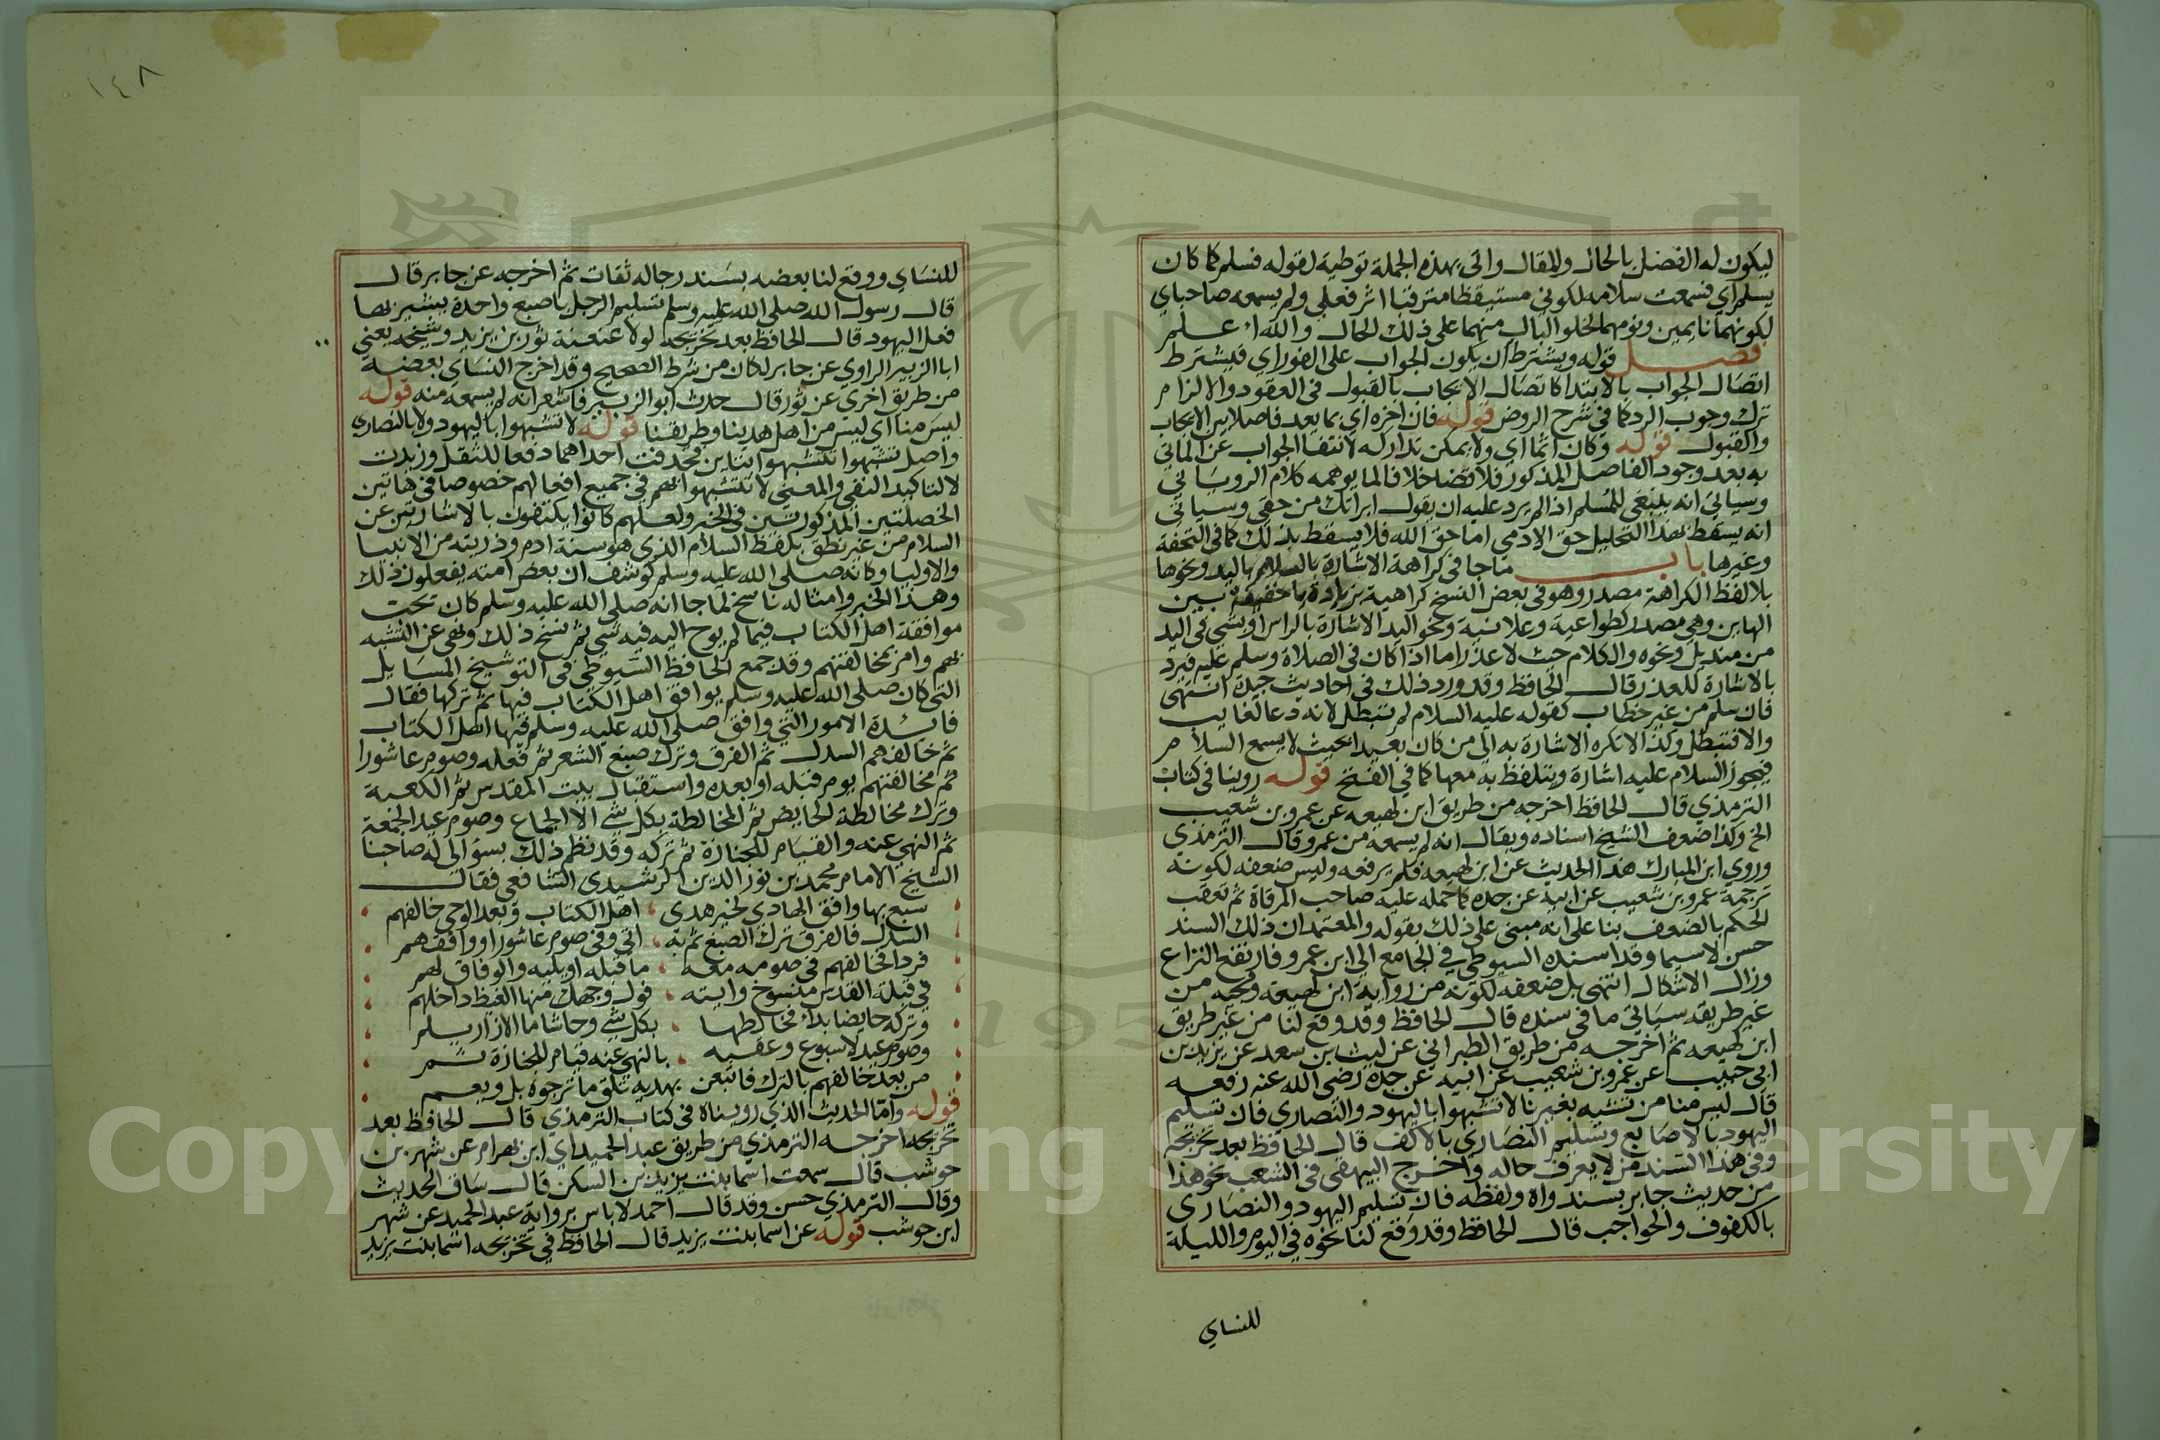 ليكون له الفضل بالحال والمقال واتى بهذه الجملة توطية لقوله فسلم كما كان
يسلم اي فسمعت سلامه لكوني مستيقظا مترقبا اثر فعلي ولم يسمعه صاحباي
لكونهما نايمين ونومهما لخلو البال منهما على ذلك الحال والله اعلم
فصل قوله ويشترط ان يكون الجواب على الفور اي فيشترط
اتصال الجواب بالابتدا كاتصال الايجاب بالقبول في العقود والا لزم
ترك وجوب الرد كما في شرح الروض قوله فان اخره اي بما يعد فاصلا بين الايجاب
والقبول قوله وكان اثما اي ولا يمكن تداركه لانتفا الجواب عن الماتي
به بعد وجود الفاصل المذكور فلا قضا خلافا لما يوهمه كلام الروياني
وسياتي انه ينبغي للمسلم اذا لم يرد عليه ان يقول ابراتك من حقي وسياتي
انه يسقط بهذا التحليل حق الادمي اما حق الله فلا يسقط بذلك كما في التحفة
وغيرها باب ما جا في كراهة الاشارة بالسلام باليد ونحوها
بلا لفظ الكراهة مصدر وهو في بعض النسخ كراهية بزيادة يا خفيفة بين
الهاين وهي مصدر كطواعية وعلانية ونحو اليد الاشارة بالراس او بشي في اليد
من منديل ونحوه والكلام حيث لا عذر اما اذا كان في الصلاة وسلم عليه فيرد
بالاشارة للعذر قال الحافظ وقد ورد ذلك في احاديث جيدة انتهى
فان سلم من غير خطاب كقوله عليه السلام لم تبطل لانه دعا لغايب
والا فتبطل وكذا لا تكره الاشارة به الى من كان بعيدا بحيث لا يسمع السلام
فيجوز السلام عليه اشارة ويتلفظ به معها كما في الفتح قوله روينا في كتاب
الترمذي قال الحافظ اخرجه من طريق ابن لهيعه عن عمرو بن شعيب
الخ وكذا ضعف الشيخ اسناده ويقال انه لم يسمعه من عمرو وقال الترمذي
وروي ابن المبارك هذا الحديث عن ابن لهيعه فلم يرفعه وليس ضعفه لكونه
ترجمة عمرو بن شعيب عن ابيه عن جده كما حمله عليه صاحب المرقاة ثم تعقب
الحكم بالضعف بنا على انه مبني على ذلك بقوله والمعتمد ان ذلك السند
حسن لاسيما وقد اسنده السيوطي في الجامع الى ابن عمرو فارتفع النزاع
وزال الاشكال انتهى بل ضعفه لكونه من رواية ابن لهيعة ومجيه من
غير طريقه سياتي ما في سنده قال الحافظ وقد وقع لنا من غير طريق
ابن لهيعه ثم اخرجه من طريق الطبراني عن ليث بن سعد عن يزيد بن
ابي حبيب عن عمرو بن شعيب عن ابيه عن جده رضى الله عنه رفعه
قال ليس منا من تشبه بغيرنا لا تشبهوا باليهود والنصاري فان تسليم
اليهود بالاصابع وتسليم النصارى بالاكف قال الحافظ بعد تخريجه
وفي هذا السند من لا يعرف حاله واخرج البيهقي في الشعب نحو هذا
من حديث جابر بسند واه ولفظه فان تسليم اليهود والنصارى
بالكفوف والحواجب قال الحافظ وقد وقع لنا نحوه في اليوم والليلة
للنساي
١٤٨
للنساي ووقع لنا بعضه بسند رجاله ثقات ثم اخرجه عن جابر قال
قال رسول الله صلى الله عليه وسلم تسليم الرجل باصبع واحدة يشير بها
فعل اليهود قال الحافظ بعد تخريجه لولا عنعنة ثور بن يزيد وشيخه يعني
ابا الزبير الراوي عن جابر لكان من شرط الصحيح وقد اخرج النساي بعضه
من طريق اخرى عن ثور قال حدث ابو الزبير فاشعر انه لم يسمعه منه قوله
ليس منا اي ليس من اهل هدينا وطريقنا قوله لا تشبهوا باليهود ولا بالنصاري
واصل تشبهوا تتشبهوا بتاين فحذفت احداهما دفعا للثقل وزيدت
لا لتاكيد النفي والمعنى لا تتشبهوا بهم في جميع افعالهم خصوصا في هاتين
الخصلتين المذكورتين في الخبر ولعلهم كانوا يكتفون بالاشارتين عن
السلام من غير نطق بلفظ السلام الذي هو سنة ادم وذريته من الانبيا
والاوليا وكانه صلى الله عليه وسلم كوشف ان بعض امته يفعلون ذلك
وهذا الخبر وامثاله ناسخ لما جا انه صلى الله عليه وسلم كان تحت
موافقة اهل الكتاب فيما لم يوح اليه فيه شي ثم نسخ ذلك ونهي عن التشبه
بهم وامر بمخالفتهم وقد جمع الحافظ السيوطي في التوشيح المسايل
التي كان صلى الله عليه وسلم يوافق اهل الكتاب فيها ثم تركها فقال
فايدة الامور التي وافق صلى الله عليه وسلم فيها اهل الكتاب
ثم خالفهم السدل ثم الفرق وترك صبغ الشعر ثم فعله وصوم عاشورا
ثم مخالفتهم بيوم قبله او بعده واستقبال بيت المقدس ثم الكعبة
وترك مخالطة الحايض ثم المخالطة بكل شي الا الجماع وصوم عيد الجمعة
ثم النهي عنه والقيام للجنازة ثم تركه وقد نظم ذلك بسوالي له صاحبنا
الشيخ الامام محمد بن نور الدين الرشيدي الشافعي فقال
سبع بها وافق الهادي لخير هدى اهل الكتاب وبعد الوحي خالفهم
السدل فالفرق ترك الصبغ ثم به اتى وفي صوم عاشورا ووافقهم
فردا فخالفهم في صومه معه ما قبله او يليه والوفاق لهم
في قبلة القدس منسوخ وايته فول وجهك منها الغيظ داخلهم
وتركه حايضا بداء فخالطها بكل شي وحاشا ما الازار يلم
وصوم عيد لاسبوع وعقبه بالنهي عنه قيام للجنازة ثم
من بعد خالفهم بالترك فاتبعن بهديه تلق ما ترجوه بل ويعم
قوله واما الحديث الذي رويناه في كتاب الترمذي قال الحافظ بعد
تخريجه اخرجه الترمذي من طريق عبد الحميد اي ابن بهرام عن شهر بن
حوشب قال سمعت اسما بنت يزيد بن السكن قال ساق الحديث
وقال الترمذي حسن وقد قال احمد لا باس برواية عبد الحميد عن شهر
ابن حوشب قوله عن اسما بنت يزيد قال الحافظ في تخريجه اسما بنت يزيد
Copyright © King Saud University
195